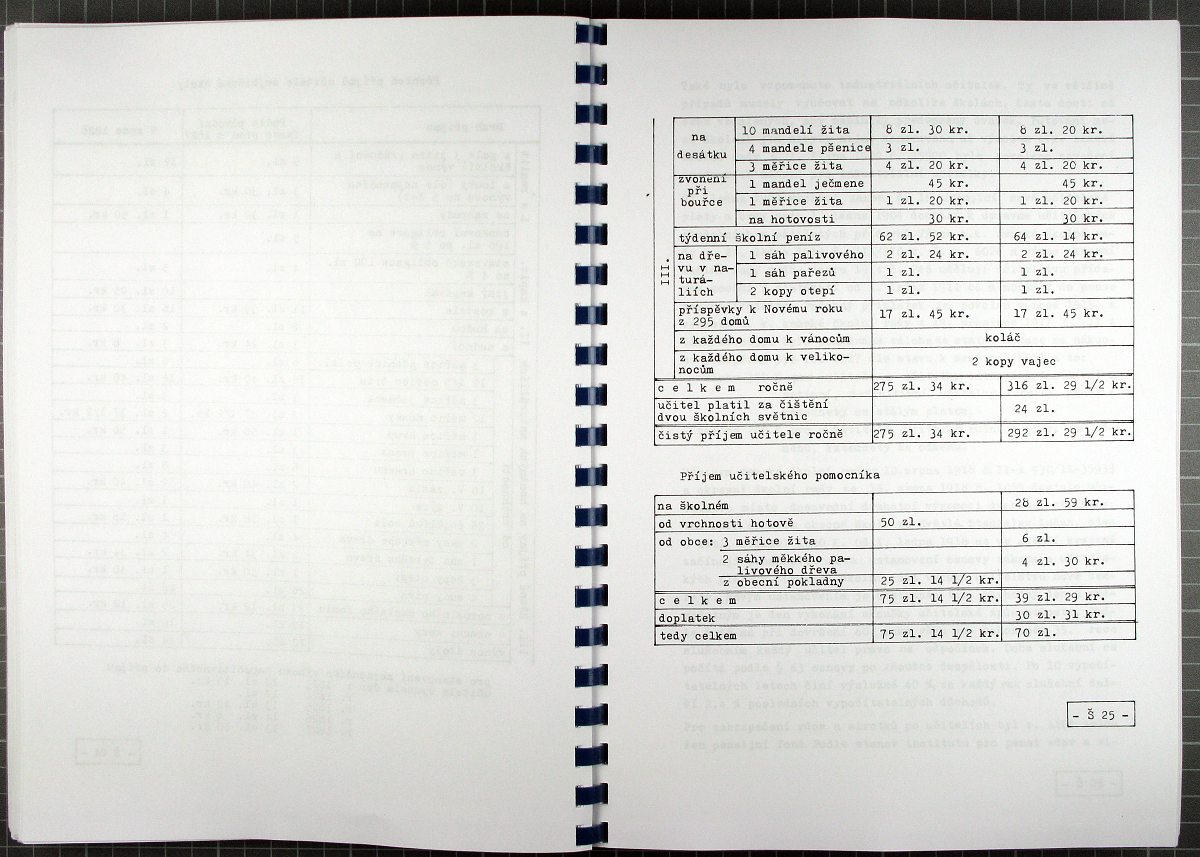 na desátku 10 mandelí žita 8 zl. 30 kr. 8 zl. 20 kr.
4 mandele pšenice 3 zl. 3 zl.
3 měřice žita 4 zl. 20 kr. 4 zl. 20 kr.
zvonění při bouřce 1 mandel ječmene 45 kr. 45 kr.
1 měřice žita 1 zl. 20 kr. 1 zl. 20 kr.
na hotovosti 30 kr. 30 kr.
III.
týdenní školní peníz 62 zl. 52 kr. 64 zl. 14 kr.
na dře-
vu v na-
turá-
liích
1 sáh palivového 2 zl. 24 kr. 2 zl. 24 kr.
1 sáh pařezů 1 zl. 1 zl.
2 kopy otepí 1 zl. 1 zl.
příspěvky k Novému roku
z 295 domů 17 zl. 45 kr. 17 zl. 45 kr.
z každého domu k vánocům koláč
z každého domu k veliko-
nocům 2 kopy vajec
c e l k e m ročně 275 zl. 34 kr. 316 zl. 29 1/2 kr.
učitel platil za čištění
dvou školních světnic 24 zl.
čistý příjem učitele ročně 275 zl. 34 kr. 292 zl. 29 1/2 kr.
Příjem učitelského pomocníka
na školném 28 zl. 59 kr.
od vrchnosti hotově 50 zl.
od obce: 3 měřice žita 6 zl.
2 sáhy měkkého pa-
livového dřeva 4 zl. 30 kr.
z obecní pokladny 25 zl. 14 1/2 kr.
c e l k e m 75 zl. 14 1/2 kr. 39 zl. 29 kr.
doplatek 30 zl. 31 kr.
tedy celkem 75 zl. 14 1/2 kr. 70 zl.
- Š 25 -